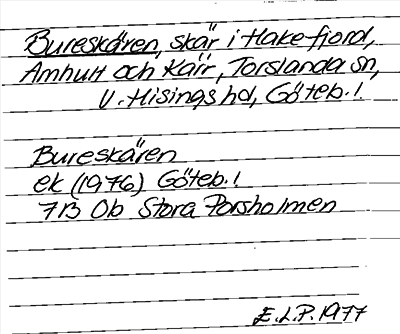 Bureskären, skär i Hakefjord,
Amhult och Kärr, Torslanda sn,
V. Hisings hd, Göteb. l.
Bureskären
ek (1976) Göteb. l
7B 0b Stora Porsholmen
E.L.P. 1977